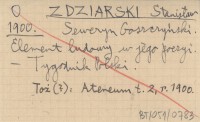 O ZDZIARSKI Stanisław
1900. Seweryn Goszczyński.
Element ludowy w jego poezji.
— Tygodnik Polski.
Toż (?). Ateneum t. 2, r. 1900.
BJ/059/0783